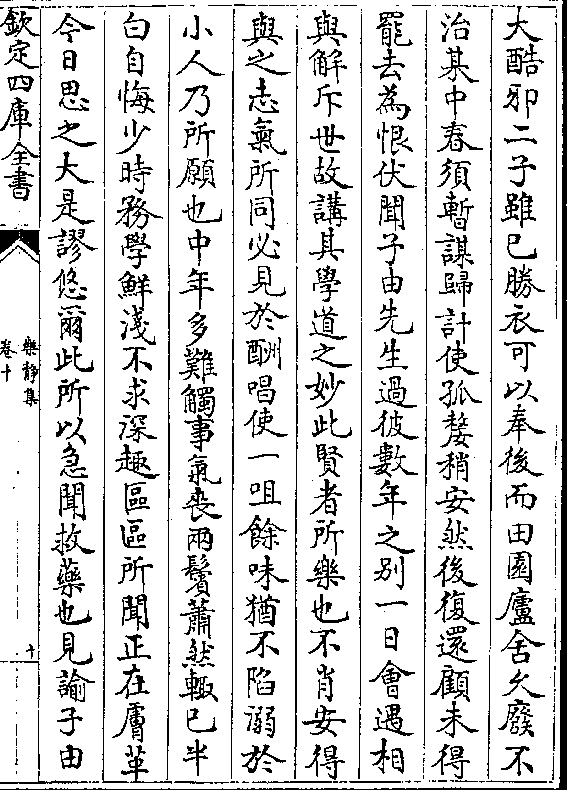 大酷邪二子雖已勝衣可以奉後而田園廬舍久廢不
治某中春須暫謀歸計使孤嫠稍安然後復還顧未得
罷去為恨伏聞子由先生過彼數年之别一日會遇相
與解斥世故講其學道之妙此賢者所樂也不肖安得
與之志氣所同必見於酬唱使一咀餘味猶不陷溺於
小人乃所願也中年多難觸事氣喪兩鬢蕭然輙已半
白自悔少時務學鮮淺不求深趣區區所聞正在膚革
今日思之大是謬悠爾此所以急聞救藥也見諭子由
欽定四庫全書
樂静集
卷十
十